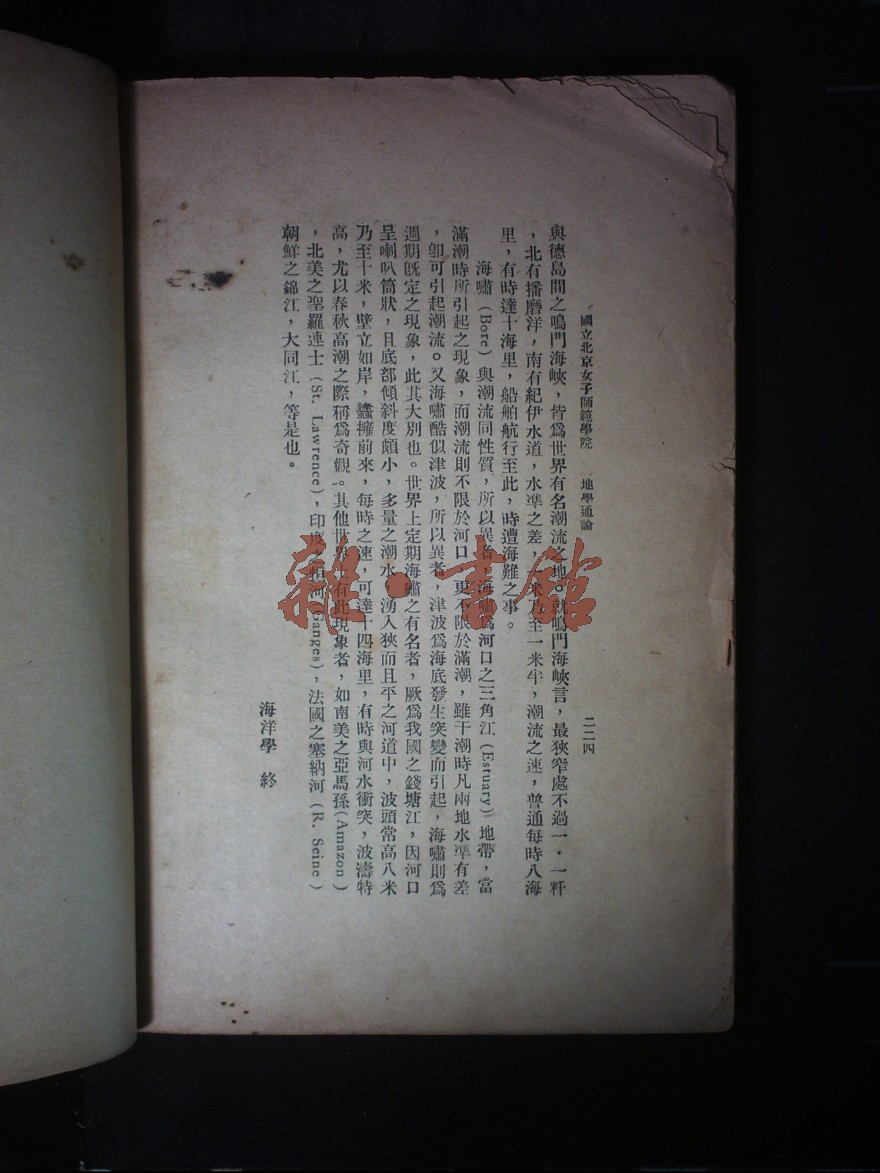 國立北京女子師範學院　地學通論　二二四
與德島間之鳴門海峽，皆爲世界有名潮流之地。就鳴門海峽言，最狹窄處不過一・一粁
，北有播磨洋，南有紀伊水道，水準之差，一米乃至一米半，潮流之速，普通每時八海
里，有時達十海里，船舶航行至此，時遭海難之事。
海嘯（Bore）與潮流同性質，所以異者，海嘯爲河口之三角江（Estuary）地帶，當
滿潮時所引起之現象，而潮流則不限於河口，更不限於滿潮，雖干潮時凡兩地水準有差
，卽可引起潮流。又海嘯酷似津波，所以異者，津波爲海底發生突變而引起，海嘯則爲
週期旣定之現象，此其大別也。世界上定期海嘯之有名者，厥爲我國之錢塘江，因河口
呈喇叭筒狀，且底部傾斜度頗小，多量之潮水，湧入狹而且平之河道中，波頭常高八米
乃至十米，壁立如岸，蠭擁前來，每時之速，可達十四海里，有時與河水衝突，波濤特
高，尤以春秋高潮之際稱爲奇觀。其他世界上有此現象者，如南美之亞馬孫（Amazon）
，北美之聖羅連士（St. Lawrence），印度之恒河（Ganges），法國之塞納河（R. Seine）
朝鮮之錦江，大同江，等是也。
海洋學　終
雜・書館